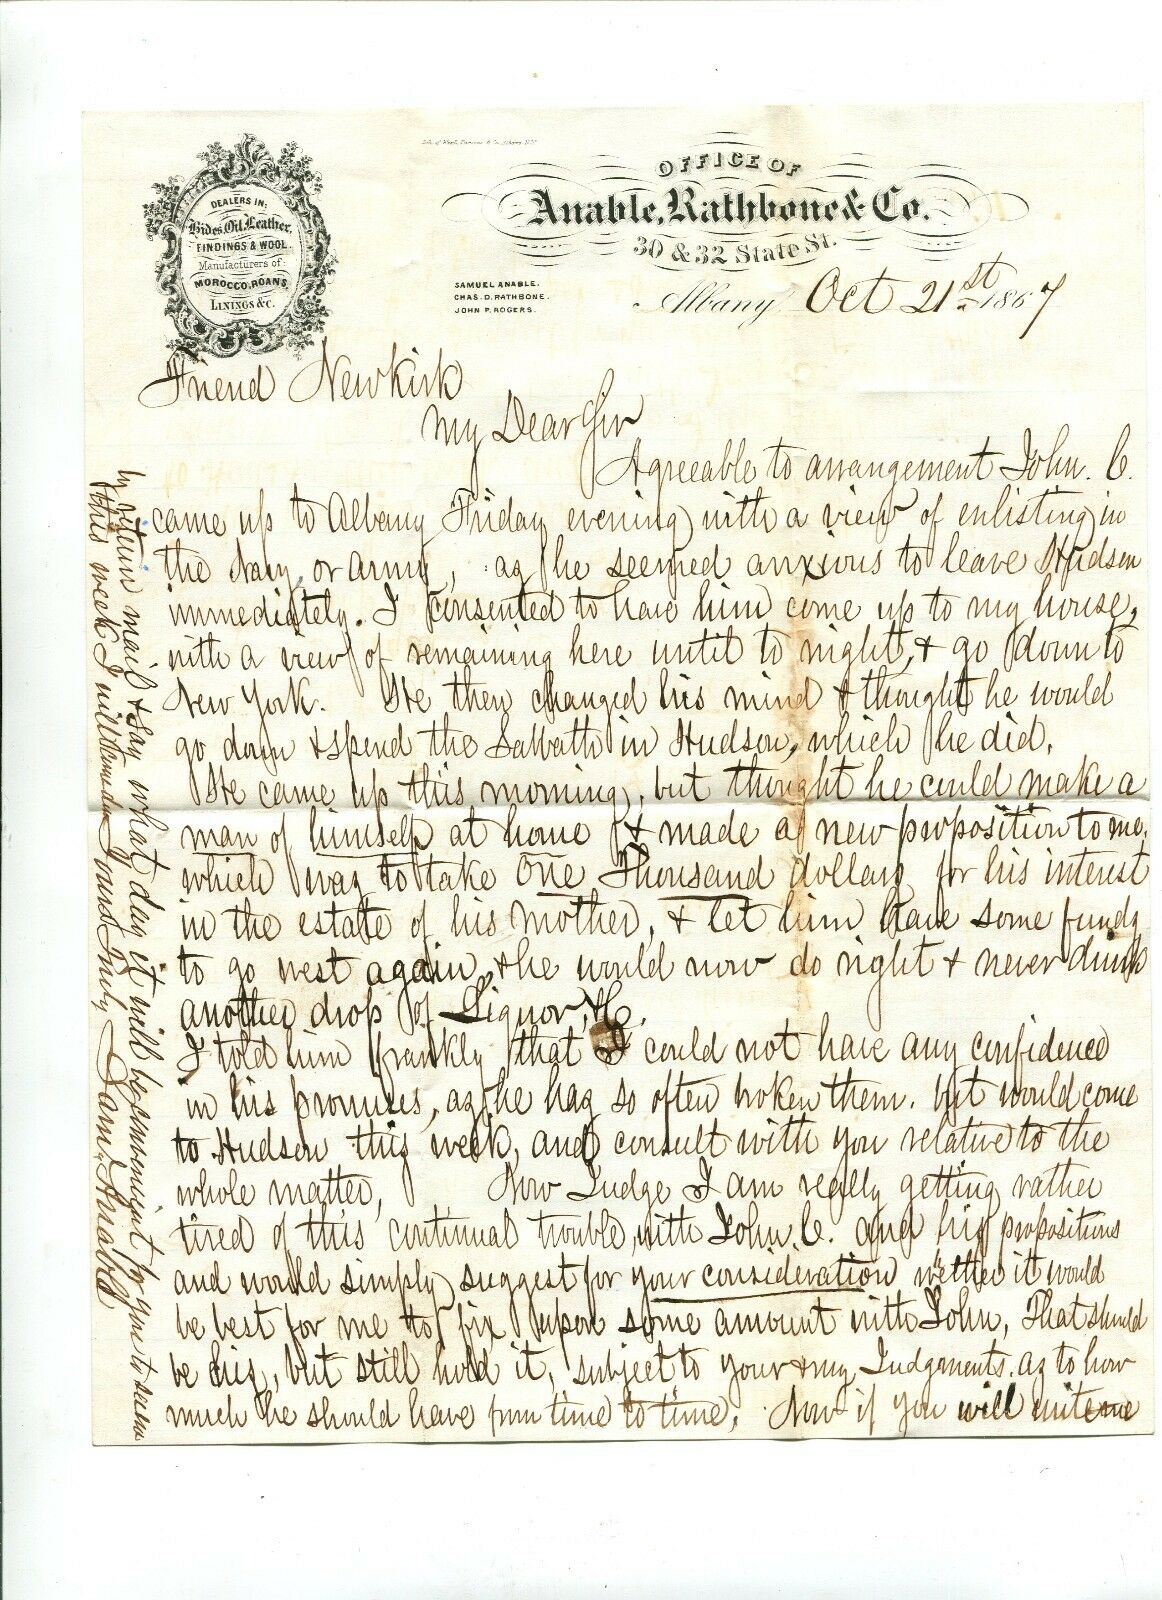 DEALERS IN:
Hides, Oil, Leather,
FINDINGS & WOOL.
Manufacturers of:
MOROCCO, ROANS,
LININGS &C.
OFFICE OF
Anable, Rathbone & Co.
30 & 32 State St.
SAMUEL ANABLE.
CHAS. D. RATHBONE.
JOHN P. ROGERS.
Albany Oct 21st 1867
Friend Newkirk
My Dear Sir
Agreeable to arrangement John. C.
came up to Albany Friday evening with a view of enlisting in
the Navy or Army, as he seemed anxious to leave Hudson
immediately. I consented to have him come up to my house,
with a view of remaining here until to night, & go down to
New York. He then changed his mind & thought he would
go down & spend the Sabbath in Hudson, which he did.
He came up this morning, but thought he could make a
man of himself at home & made a new proposition to me,
which was to take One Thousand dollars for his interest
in the estate of his mother, & let him have some funds
to go west again & he would now do right & never drink
another drop of Liquor, &c.
I told him frankly that I could not have any confidence
in his promises, as he has so often broken them. but would come
to Hudson this week, and consult with you relative to the
whole matter, Now Judge I am really getting rather
tired of this continual trouble, with John C. and his propositions
and would simply suggest for your consideration wether it would
be best for me to fix upon some amount with John, That should
be his, but still hold it, subject to your & my Judgments. as to how
much he should have from time to time, Now if you will write me
by return mail & say what day it will be convenient for you to see me
this week I will come down Yours Truly Sam. Anable